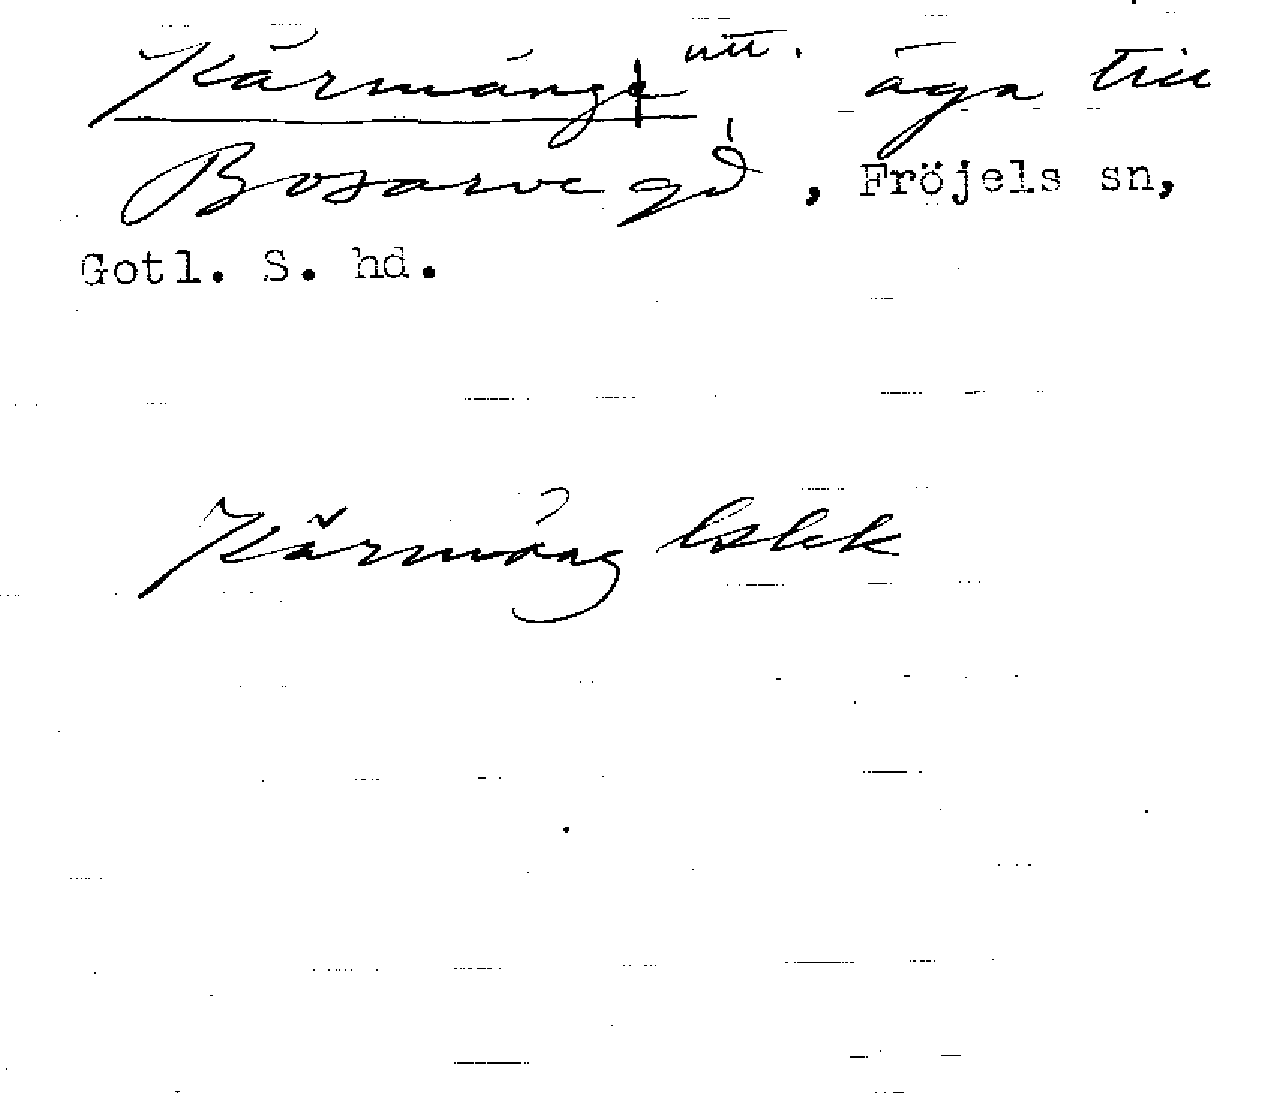 Kärmänge utt. äga till
Bosarve gd, Fröjels sn,
Gotl. S. hd.
Kärmäng